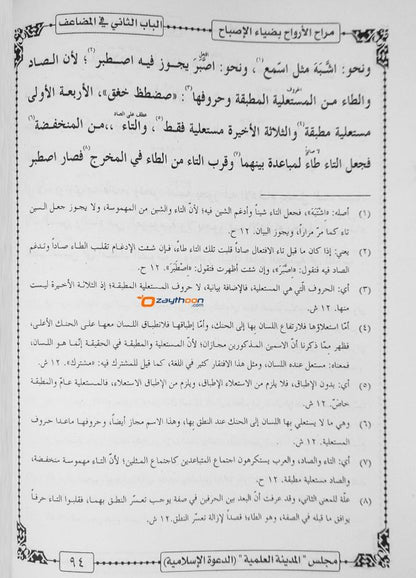 مراح الأرواح بضياء الإصباح
الباب الثاني في المضاعف
ونحو: اشّبَهَ مثل اسّمع(١)، ونحو: اصّبَرَ يجوز فيه اصطبر(٢)؛ لأن الصاد
والطاء من المستعلية المطبقة وحروفها(٣): «صضطظ خغق»، الأربعة الأولى
مستعلية مطبقة(٤) والثلاثة الأخيرة مستعلية فقط(٥)، والتاء ... من المنخفضة(٦)
فجعل التاء طاءً لمباعدة بينهما(٧) وقرب التاء من الطاء في المخرج(٨) فصار اصطبر
(١) أصله: «اشْتَبَهَ»، فجعل التاء شيناً وأدغم الشين فيه؛ لأنّ التاء والشين من المهموسة، ولا يجوز جعل الشين
تاء كما مرّ مراراً، ويجوز البيان. ١٢ ح.
(٢) يعني: إذا كان ما قبل تاء الافتعال صاداً قلبت تلك التاء طاءً، فإن شئت الإدغام تقلب الطاء صاداً وتدغم
الصاد فيه فتقول: «اِصَّبَرَ»، وإن شئت أظهرت فتقول: «اِصْطَبَرَ». ١٢ ح.
(٣) أي: الحروف الّتي هي المستعلية، فالإضافة بيانية، لا حروف المستعلية المطبقة؛ إذ الثلاثة الأخيرة ليست
منها. ١٢ ش.
Ozaythoon.com
(٤) أمّا استعلاؤها فلارتفاع اللسان بها إلى الحنك، وأمّا إطباقها فلانطباق اللسان معها على الحنك الأعلى،
فظهر ممّا ذكرنا أنّ الاسمين المذكورين مجازان؛ لأنّ المستعلية والمطبقة في الحقيقة إنّما هو اللسان،
فمعناه: مستعل عنده اللسان، ومثل هذا الافتقار كثير في اللغة، كما قيل للمشترك فيه: «مشترك». ١٢ ش.
(٥) أي: بدون الإطباق، فلا يلزم من الاستعلاء الإطباق، ويلزم من الإطباق الاستعلاء، فالمستعلية عامّ والمطبقة
خاصّ. ١٢ ش.
(٦) وهي ما لا يستعلي بها اللسان إلى الحنك عند النطق بها، وهذا الاسم مجاز أيضاً، وحروفها ماعدا حروف
المستعلية. ١٢ ش.
(٧) أي: التاء والصاد، والعرب يستكرهون اجتماع المتباعدين كاجتماع المثلين؛ لأنّ التاء مهموسة منخفضة،
والصاد مستعلية مطبقة. ١٢ ح.
(٨) علّة للمعنى الثاني، وقد عرفت أنّ البعد بين الحرفين في صفة يوجب تعسّر النطق بهما، فقلبوا التاء حرفاً
يوافق ما قبله في الصفة، وهو الطاء؛ قصداً لإزالة تعسّر النطق. ١٢ ش.
مجلس "المدينة العلمية" (الدعوة الإسلامية)
٩٤